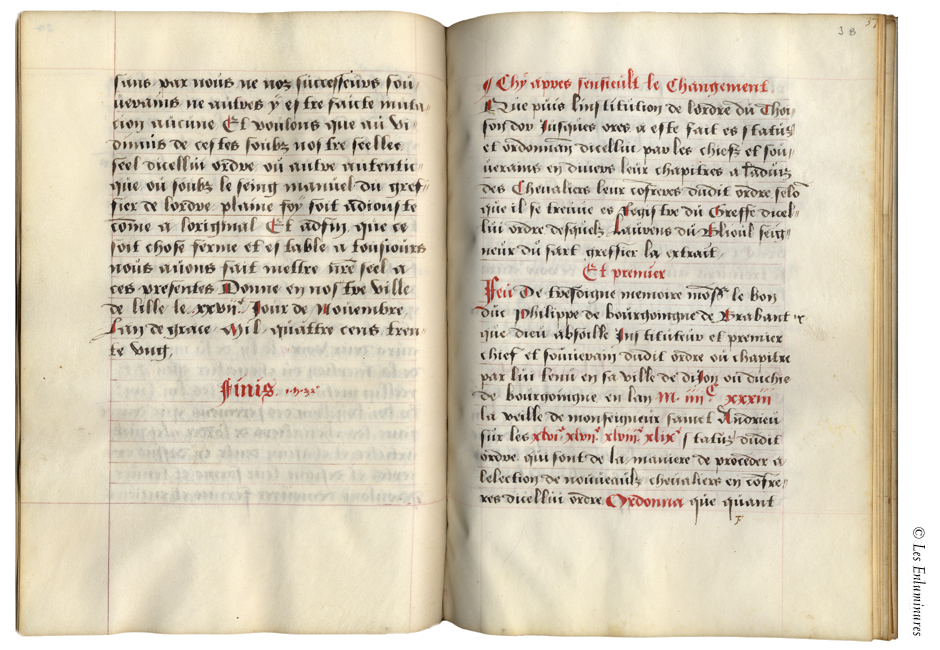 sans par nous ne noz successeurs sou//
uerains ne aultres y estre faicte muta//
cion aucune Et voulons que au vi//
dimus de cestes soubz nostre seelles
seel dicellui ordre ou autre autentic//
que ou soubz le seing manuel du gref//
fier de lordre plaine foy soit adiouste
cōme a loriginal Et adfin que ce
soit chose ferme et estable a tousiours
nous auons fait mettre nr̄e seel a
ces presentes Donne en nostre ville
de lille le xxviiᵉ Jour de Nouembre
Lan de grace Mil quattre cens tren//
te vng.
Finis
38
57
¶ Chy apres sensieult le Changement
Que puis linstitution de lordre du Thoi//
son dor Jusques ores a este fait es statuz
et ordonnan dicellui par les chiefz et sou//
uerains en diuers leur chapitres a laduiz
des Cheualiers leur cōfreres dudit ordre selō
que il se treuue es Registre du Greffe dicel//
lui ordre desquelz Laurens du Blioul seig//
neur du sart greffier la extrait
Et premier
Feu De tresdigne memoire mōsʳ le bon
duc Philippe de bourgoingne de Brabant
que dieu absoille Instituteur et premier
chief et souuerain dudit ordre ou chapitre
par lui tenu en sa ville de diJon ou duchie
de bourgoingne en lan M. iiiiᶜ xxxiii
la veille de monseigneur sainct Andrieu
sur les xlviᵉ xlviiᵉ xlviiiᵉ xlixᵉ statuz dudit
ordre qui sont de la maniere de proceder a
lelection de nouueaulz cheualiers en cōfre//
res dicellui ordre Ordonna que quant
F
© Les Enluminures